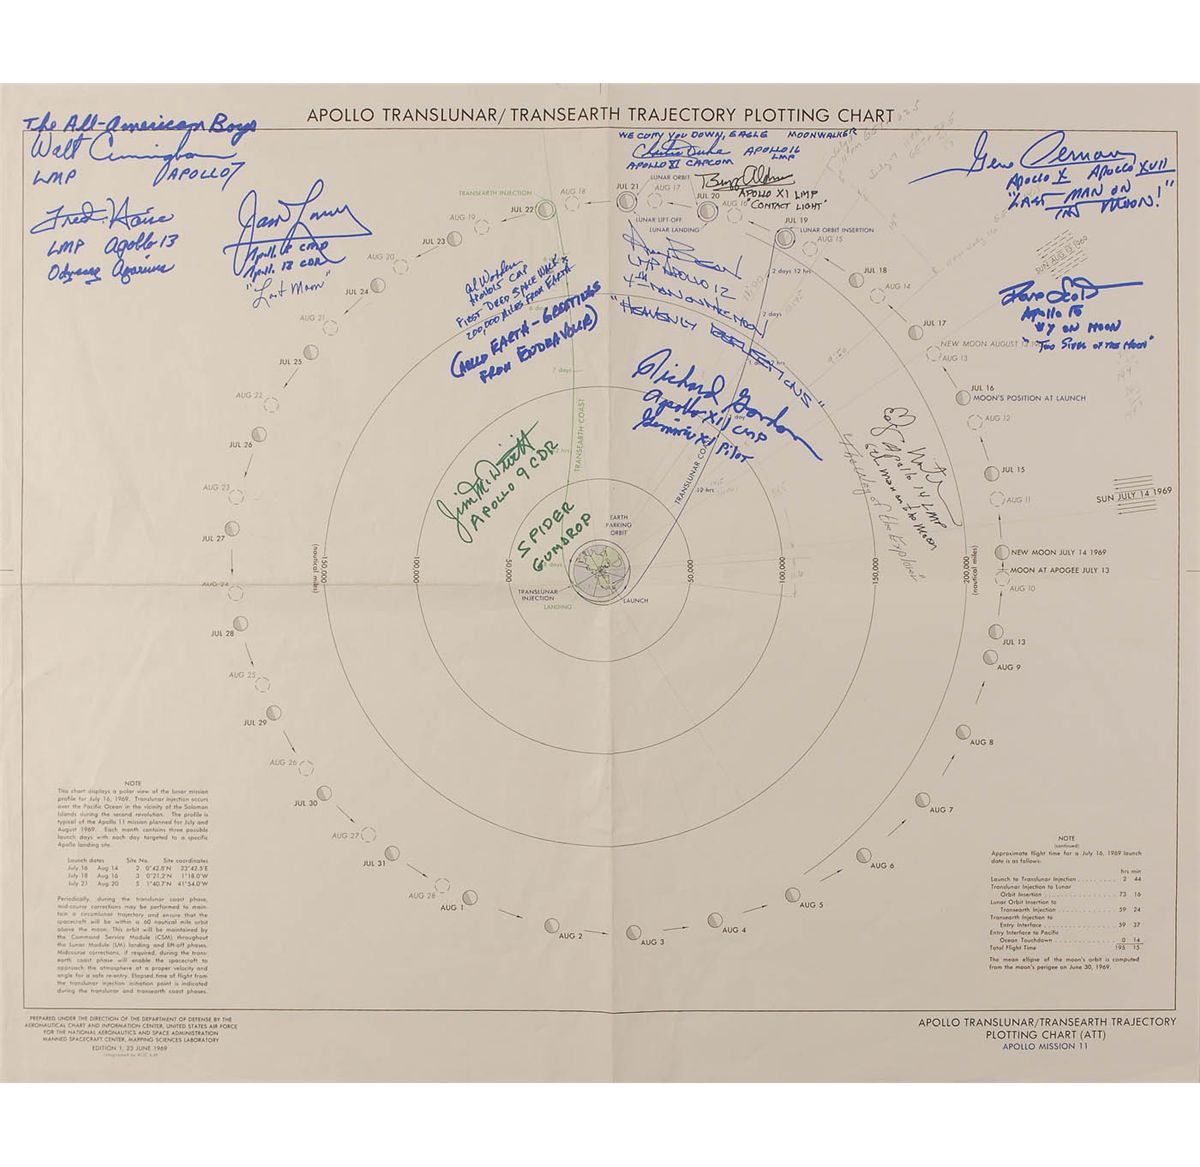 APOLLO TRANSLUNAR/TRANSEARTH TRAJECTORY PLOTTING CHART
The All-American Boys
Walt Cunningham
LMP APOLLO 7
Fred Haise
LMP Apollo 13
Odyssey Aquarius
Jam Lovell
Apollo 8 CMP
Apoll. 13 CDR
"Lost Moon"
WE COPY YOU DOWN, EAGLE MOONWALKER
Charlie Duke APOLLO 16
LMP
APOLLO XI CAPCOM
Buzz Aldrin
APOLLO XI LMP
"CONTACT LIGHT"
Gene Cernan
APOLLO X APOLLO XVII
"LAST MAN ON
THE MOON!"
Dave Scott
Apollo 15
#7 ON MOON
"TWO SIDES OF THE MOON"
Al Worden
APOLLO 15 CMP
FIRST DEEP SPACE WALK
200,000 MILES FROM EARTH
(HELLO EARTH - GREETINGS
FROM ENDEAVOUR)
Alan Bean
LMP APOLLO 12
4TH MAN ON THE MOON
"HEAVENLY REFLECTIONS"
Richard Gordon
Apollo XII CMP
Gemini XI Pilot
Jim McDivitt
APOLLO 9 CDR
SPIDER
GUMDROP
Apollo 14 LMP
6th man on the Moon
"The Way of the Explorer"
TRANSEARTH INJECTION
LUNAR ORBIT
LUNAR LIFT-OFF
LUNAR LANDING
LUNAR ORBIT INSERTION
JUL 22
AUG 18
JUL 21
AUG 17
JUL 20
AUG 16
JUL 19
AUG 15
JUL 18
AUG 14
JUL 17
NEW MOON AUGUST 13
AUG 13
JUL 16
MOON'S POSITION AT LAUNCH
AUG 12
JUL 15
AUG 11
SUN JULY 14 1969
SUN AUG 13 1969
NEW MOON JULY 14 1969
MOON AT APOGEE JULY 13
AUG 10
JUL 13
AUG 9
AUG 8
AUG 7
AUG 6
AUG 5
AUG 4
AUG 3
AUG 2
AUG 1
AUG 28
JUL 31
AUG 27
JUL 30
AUG 26
JUL 29
AUG 25
JUL 28
AUG 24
JUL 27
AUG 23
JUL 26
AUG 22
JUL 25
AUG 21
JUL 24
AUG 20
JUL 23
AUG 19
2 days 12 hrs
2 days
12 hrs
7 days
8 days
TRANSEARTH COAST
TRANSLUNAR COAST
EARTH
PARKING
ORBIT
TRANSLUNAR
INJECTION
LANDING
LAUNCH
(nautical miles)
150,000
100,000
50,000
50,000
100,000
150,000
200,000
(nautical miles)
NOTE
This chart displays a polar view of the lunar mission
profile for July 16, 1969. Translunar injection occurs
over the Pacific Ocean in the vicinity of the Solomon
Islands during the second revolution. The profile is
typical of the Apollo 11 mission planned for July and
August 1969. Each month contains three possible
launch days with each day targeted to a specific
Apollo landing site.
Launch dates Site No. Site coordinates
July 16 Aug 14 2 0°42.8'N 23°42.5'E
July 18 Aug 16 3 0°21.2'N 1°18.0'W
July 21 Aug 20 5 1°40.7'N 41°54.0'W
Periodically, during the translunar coast phase,
mid-course corrections may be performed to main-
tain a circumlunar trajectory and ensure that the
spacecraft will be within a 60 nautical mile orbit
above the moon. This orbit will be maintained by
the Command Service Module (CSM) throughout
the Lunar Module (LM) landing and lift-off phases.
Midcourse corrections, if required, during the trans-
earth coast phase will enable the spacecraft to
approach the atmosphere at a proper velocity and
angle for a safe re-entry. Elapsed time of flight from
the translunar injection initiation point is indicated
during the translunar and transearth coast phases.
NOTE
(continued)
Approximate flight time for a July 16, 1969 launch
date is as follows:
hrs min
Launch to Translunar Injection 2 44
Translunar Injection to Lunar
Orbit Insertion 73 16
Lunar Orbit Insertion to
Transearth Injection 59 24
Transearth Injection to
Entry Interface 59 37
Entry Interface to Pacific
Ocean Touchdown 0 14
Total Flight Time 195 15
The mean ellipse of the moon's orbit is computed
from the moon's perigee on June 30, 1969.
PREPARED UNDER THE DIRECTION OF THE DEPARTMENT OF DEFENSE BY THE
AERONAUTICAL CHART AND INFORMATION CENTER, UNITED STATES AIR FORCE
FOR THE NATIONAL AERONAUTICS AND SPACE ADMINISTRATION
MANNED SPACECRAFT CENTER, MAPPING SCIENCES LABORATORY
EDITION 1, 23 JUNE 1969
APOLLO TRANSLUNAR/TRANSEARTH TRAJECTORY
PLOTTING CHART (ATT)
APOLLO MISSION 11